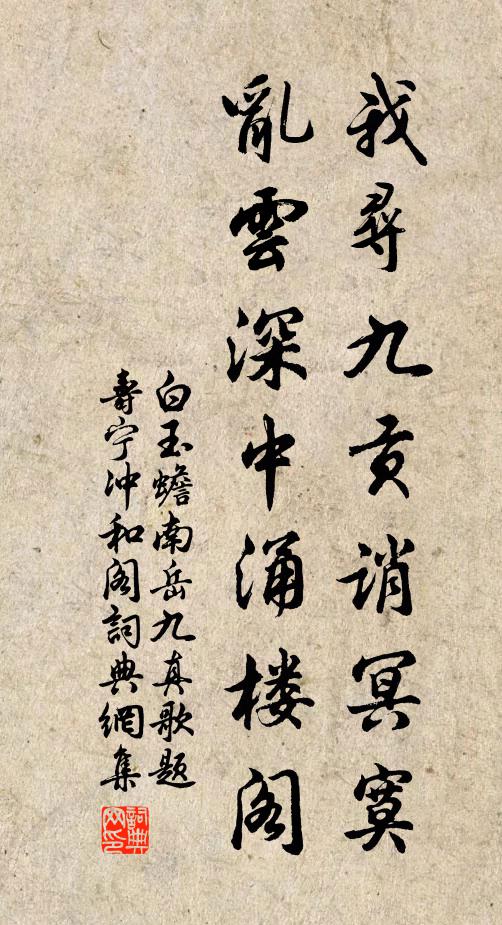 我尋九贡誚冥寞
亂雲深中涌楼阁
白玉蟾南岳九真歌题
壽宁冲和阁詞典網集
詞典网印